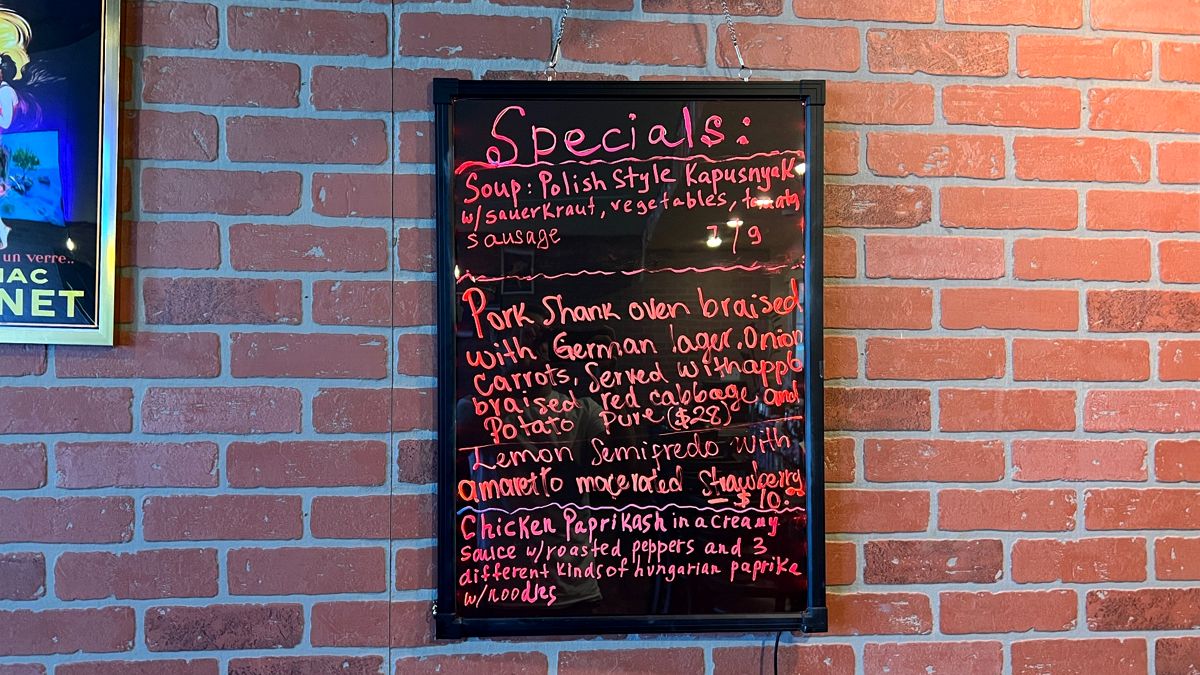 un verre..
IAC
NET
Specials:
Soup: Polish Style Kapusnyak
w/sauerkraut, vegetables, tomato
sausage 7/9
Pork Shank oven braised
with German lager. Onion
Carrots, Served with apple
braised red cabbage and
Potato Pure ($28)
Lemon Semifredo with
amaretto macerated Strawberry
$10.
Chicken Paprikash in a creamy
sauce w/roasted peppers and 3
different kinds of hungarian paprika
w/noodles